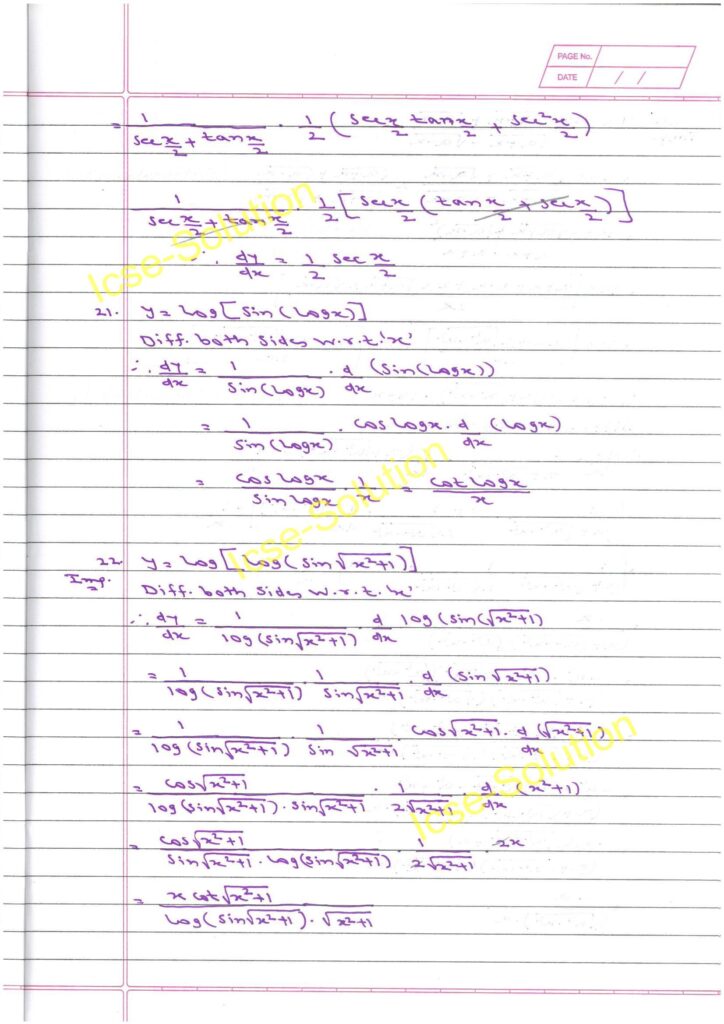 PAGE No.
DATE / /
= 1/(sec x/2 + tan x/2) · 1/2 (sec x/2 tan x/2 + sec² x/2)
1/(sec x/2 + tan x/2) · 1/2 [sec x/2 (tan x/2 + sec x/2)]
∴ dy/dx = 1/2 sec x/2
21. y = log[sin(logx)]
Diff. both sides w.r.t. 'x'
∴ dy/dx = 1/sin(logx) · d/dx (sin(logx))
= 1/sin(logx) · cos logx · d/dx (logx)
= cos logx/sin logx · 1/x = cot logx/x
22. y = log[log(sin√(x²+1)]
Imp.
Diff. both sides w.r.t. 'x'
∴ dy/dx = 1/log(sin√(x²+1)) d/dx log(sin(√(x²+1))
= 1/log(sin√(x²+1)) · 1/sin√(x²+1) · d/dx (sin√(x²+1))
= 1/log(sin√(x²+1)) · 1/sin √(x²+1) · cos√(x²+1) · d/dx (√(x²+1))
= cos√(x²+1)/log(sin√(x²+1)) · sin√(x²+1) · 1/2√(x²+1) · d/dx (x²+1)
= cos√(x²+1)/sin√(x²+1) · log(sin√(x²+1)) · 1/2√(x²+1) · 2x
= x cot√(x²+1)/log(sin√(x²+1)) · √(x²+1)
Icse-Solution
Icse-Solution
Icse-Solution